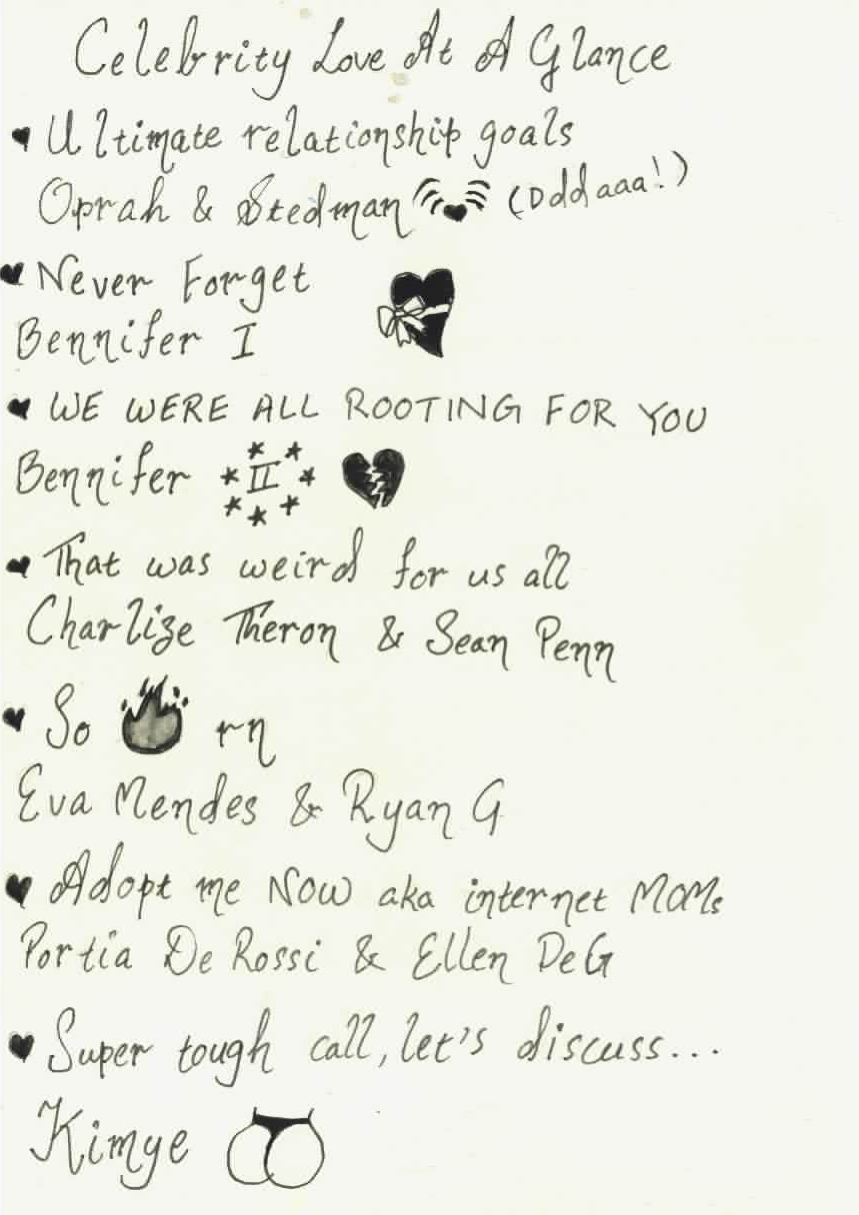 Celebrity Love At A Glance
Ultimate relationship goals
Oprah & Stedman (Dddaaa!)
Never Forget
Bennifer I
WE WERE ALL ROOTING FOR YOU
Bennifer II
That was weird for us all
Charlize Theron & Sean Penn
So rn
Eva Mendes & Ryan G
Adopt me NOW aka internet MOMs
Portia De Rossi & Ellen DeG
Super tough call, let's discuss...
Kimye